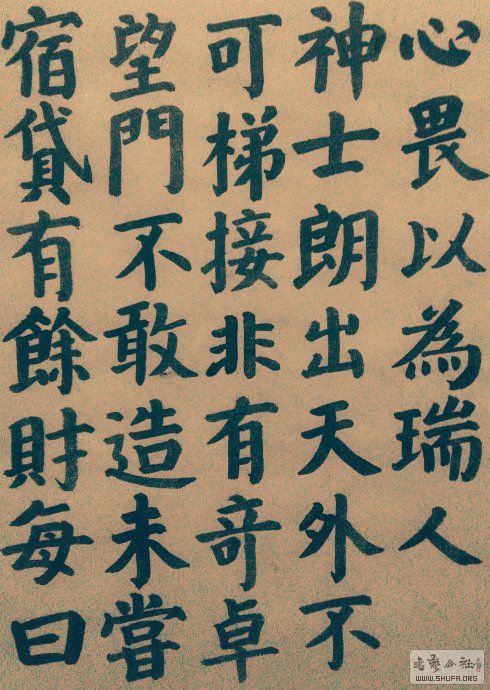 心畏以為瑞人
神士朗出天外不
可梯接非有竒卓
望門不敢造未嘗
宿貸有餘財每曰
公社
WWW.SHUFA.ORG